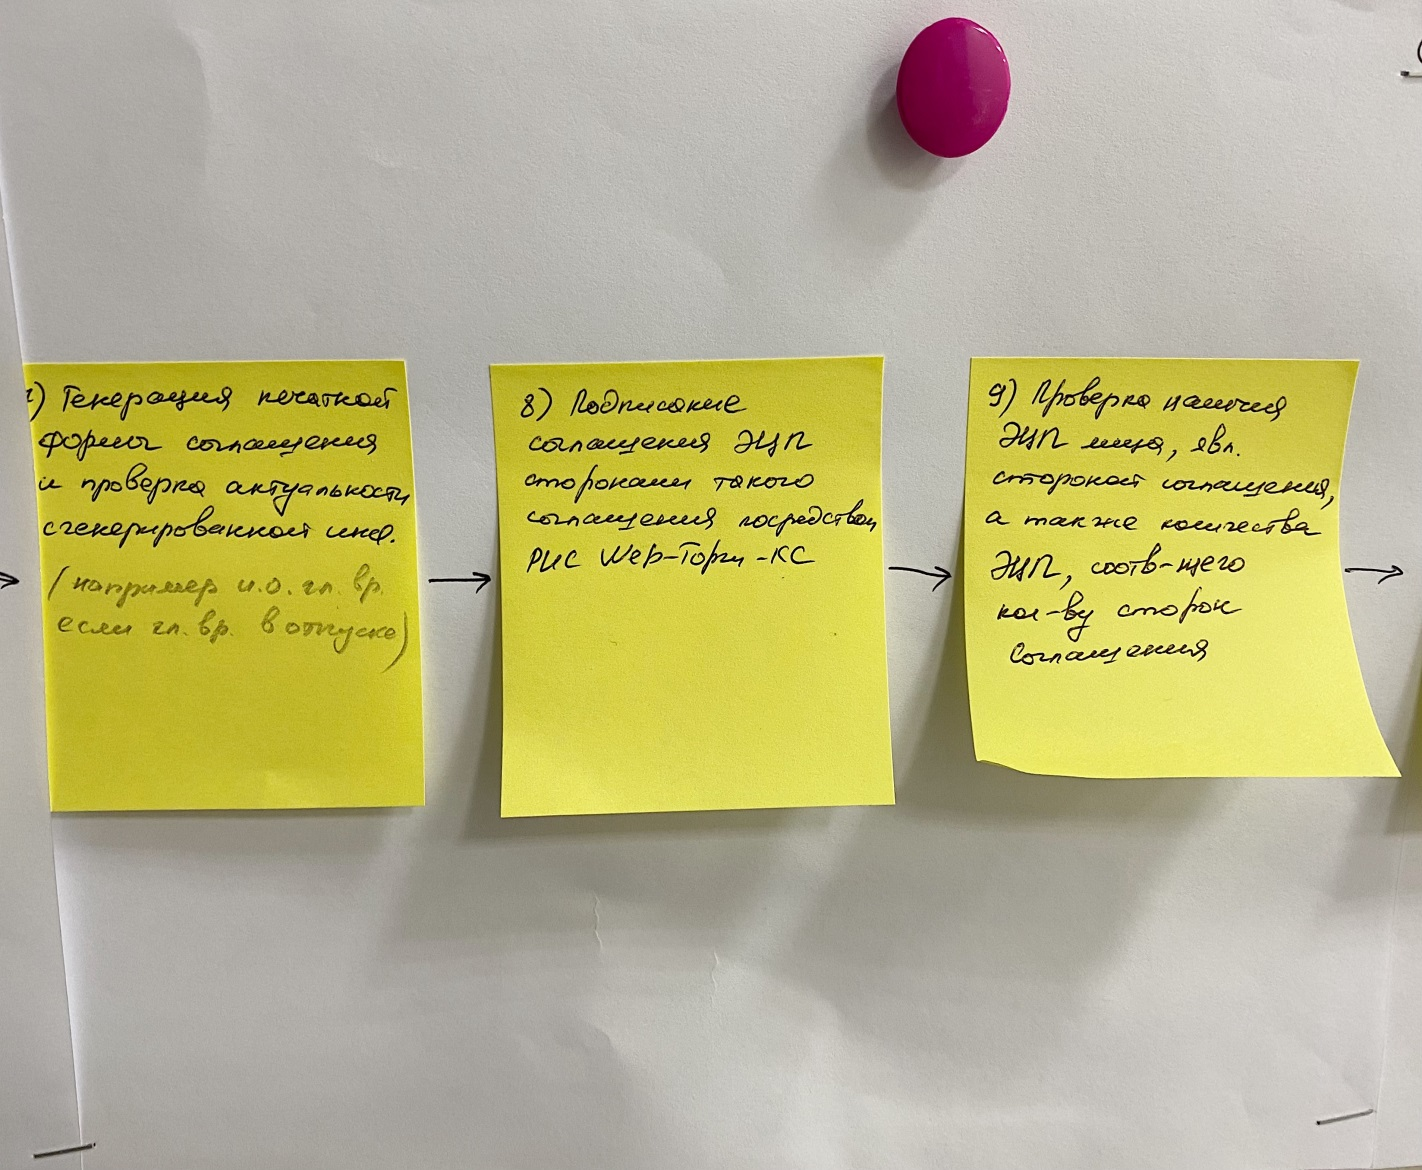 ) Генерация печатной
формы соглашения
и проверка актуальности
сгенерированной инф.
(например и.о. гл. вр.
если гл. вр. в отпуске)
8) Подписание
соглашения ЭЦП
сторонами такого
соглашения посредством
РИС Web-Торги-КС
9) Проверка наличия
ЭЦП лица, явл.
стороной соглашения,
а также количества
ЭЦП, соотв-щего
кол-ву сторон
соглашения